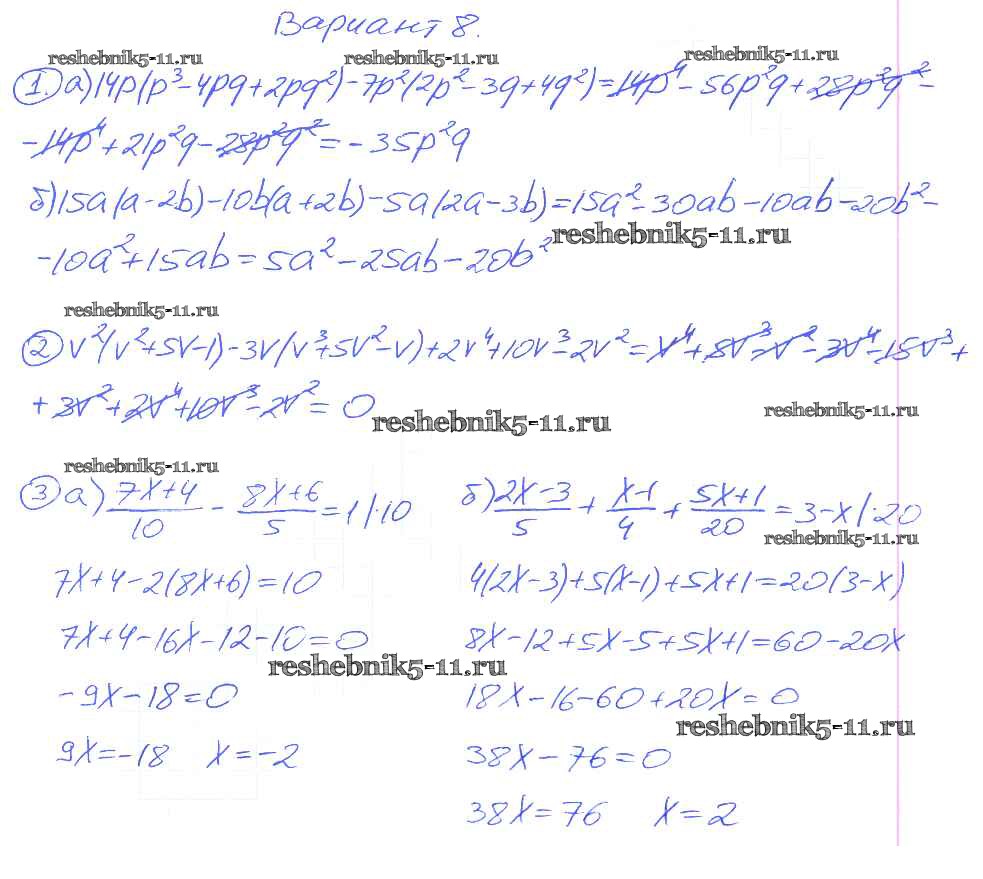 Вариант 8.
reshebnik5-11.ru reshebnik5-11.ru reshebnik5-11.ru
1. а) 14p(p³-4pq+2pq²)-7p²(2p²-3q+4q²)=14p⁴-56p²q+28p²q²-
-14p⁴+21p²q-28p²q²=-35p²q
б) 15a(a-2b)-10b(a+2b)-5a(2a-3b)=15a²-30ab-10ab-20b²-
reshebnik5-11.ru
-10a²+15ab=5a²-25ab-20b²
reshebnik5-11.ru
2 v²(v²+5v-1)-3v(v³+5v²-v)+2v⁴+10v³-2v²=v⁴+5v³-v²-3v⁴-15v³+
+3v²+2v⁴+10v³-2v²=0
reshebnik5-11.ru reshebnik5-11.ru
reshebnik5-11.ru
3 а) (7x+4)/10 - (8x+6)/5 = 1 |·10
7x+4-2(8x+6)=10
7x+4-16x-12-10=0
reshebnik5-11.ru
-9x-18=0
9x=-18 x=-2
б) (2x-3)/5 + (x-1)/4 + (5x+1)/20 = 3-x |·20
reshebnik5-11.ru
4(2x-3)+5(x-1)+5x+1=20(3-x)
8x-12+5x-5+5x+1=60-20x
18x-16-60+20x=0
reshebnik5-11.ru
38x-76=0
38x=76 x=2